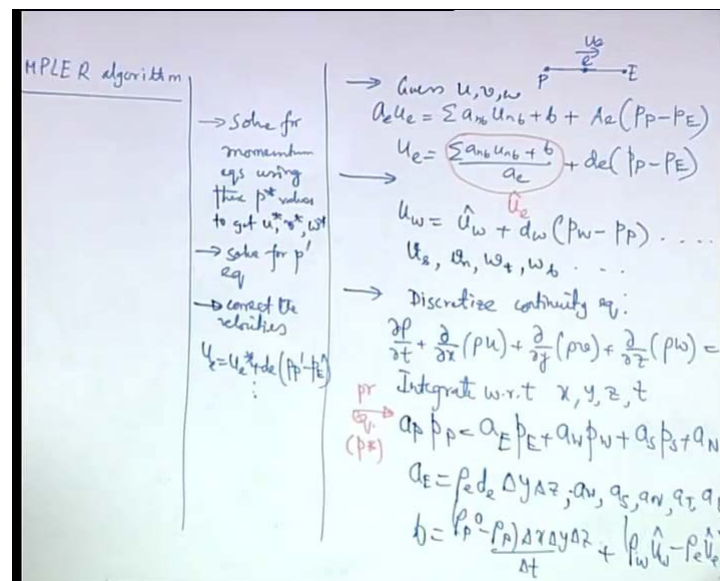 MPLER algorithm
→ solve for
momentum
eqs using
these p* values
to get u*, v*, w*
→ solve for p'
eq
→ correct the
velocities
u_e = u_e* + d_e(p_P' - p_E')
:
u_e
P e E
→ Guess u, v, w
a_e u_e = Σ a_nb u_nb + b + A_e(p_P - p_E)
→ u_e = (Σ a_nb u_nb + b) / a_e + d_e(p_P - p_E)
û_e
u_w = û_w + d_w(p_W - p_P) . . . .
w_t, w_b . . .
→ Discretize continuity eq:
∂ρ/∂t + ∂/∂x(ρu) + ∂/∂y(ρv) + ∂/∂z(ρw) =
Integrate w.r.t x, y, z, t
pr
eq.
(p*)
→ a_P p_P = a_E p_E + a_W p_W + a_S p_S + a_N
a_E = ρ_e d_e Δy Δz, a_W, a_S, a_N, a_T, a
b = (ρ_P⁰ - ρ_P) Δx Δy Δz / Δt + (ρ_w û_w - ρ_e û_e